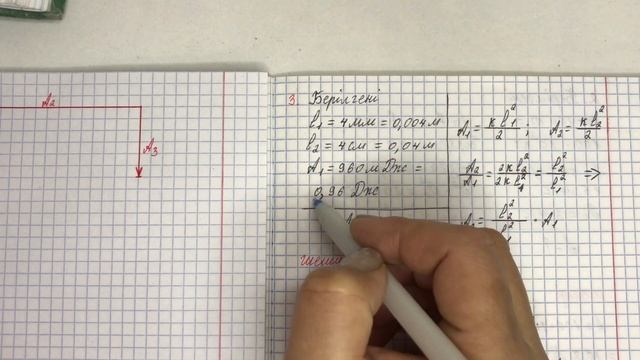 A₂
A₃
3. Берілгені
l₁ = 4мм = 0,004м
l₂ = 4см = 0,04м
A₁ = 960мДж =
0,96 Дж
A₁ = kl₁²/2 ; A₂ = kl₂²/2
A₂/A₁ = 2kl₂²/2kl₁² = l₂²/l₁² =>
= l₂²/l₁² · A₁